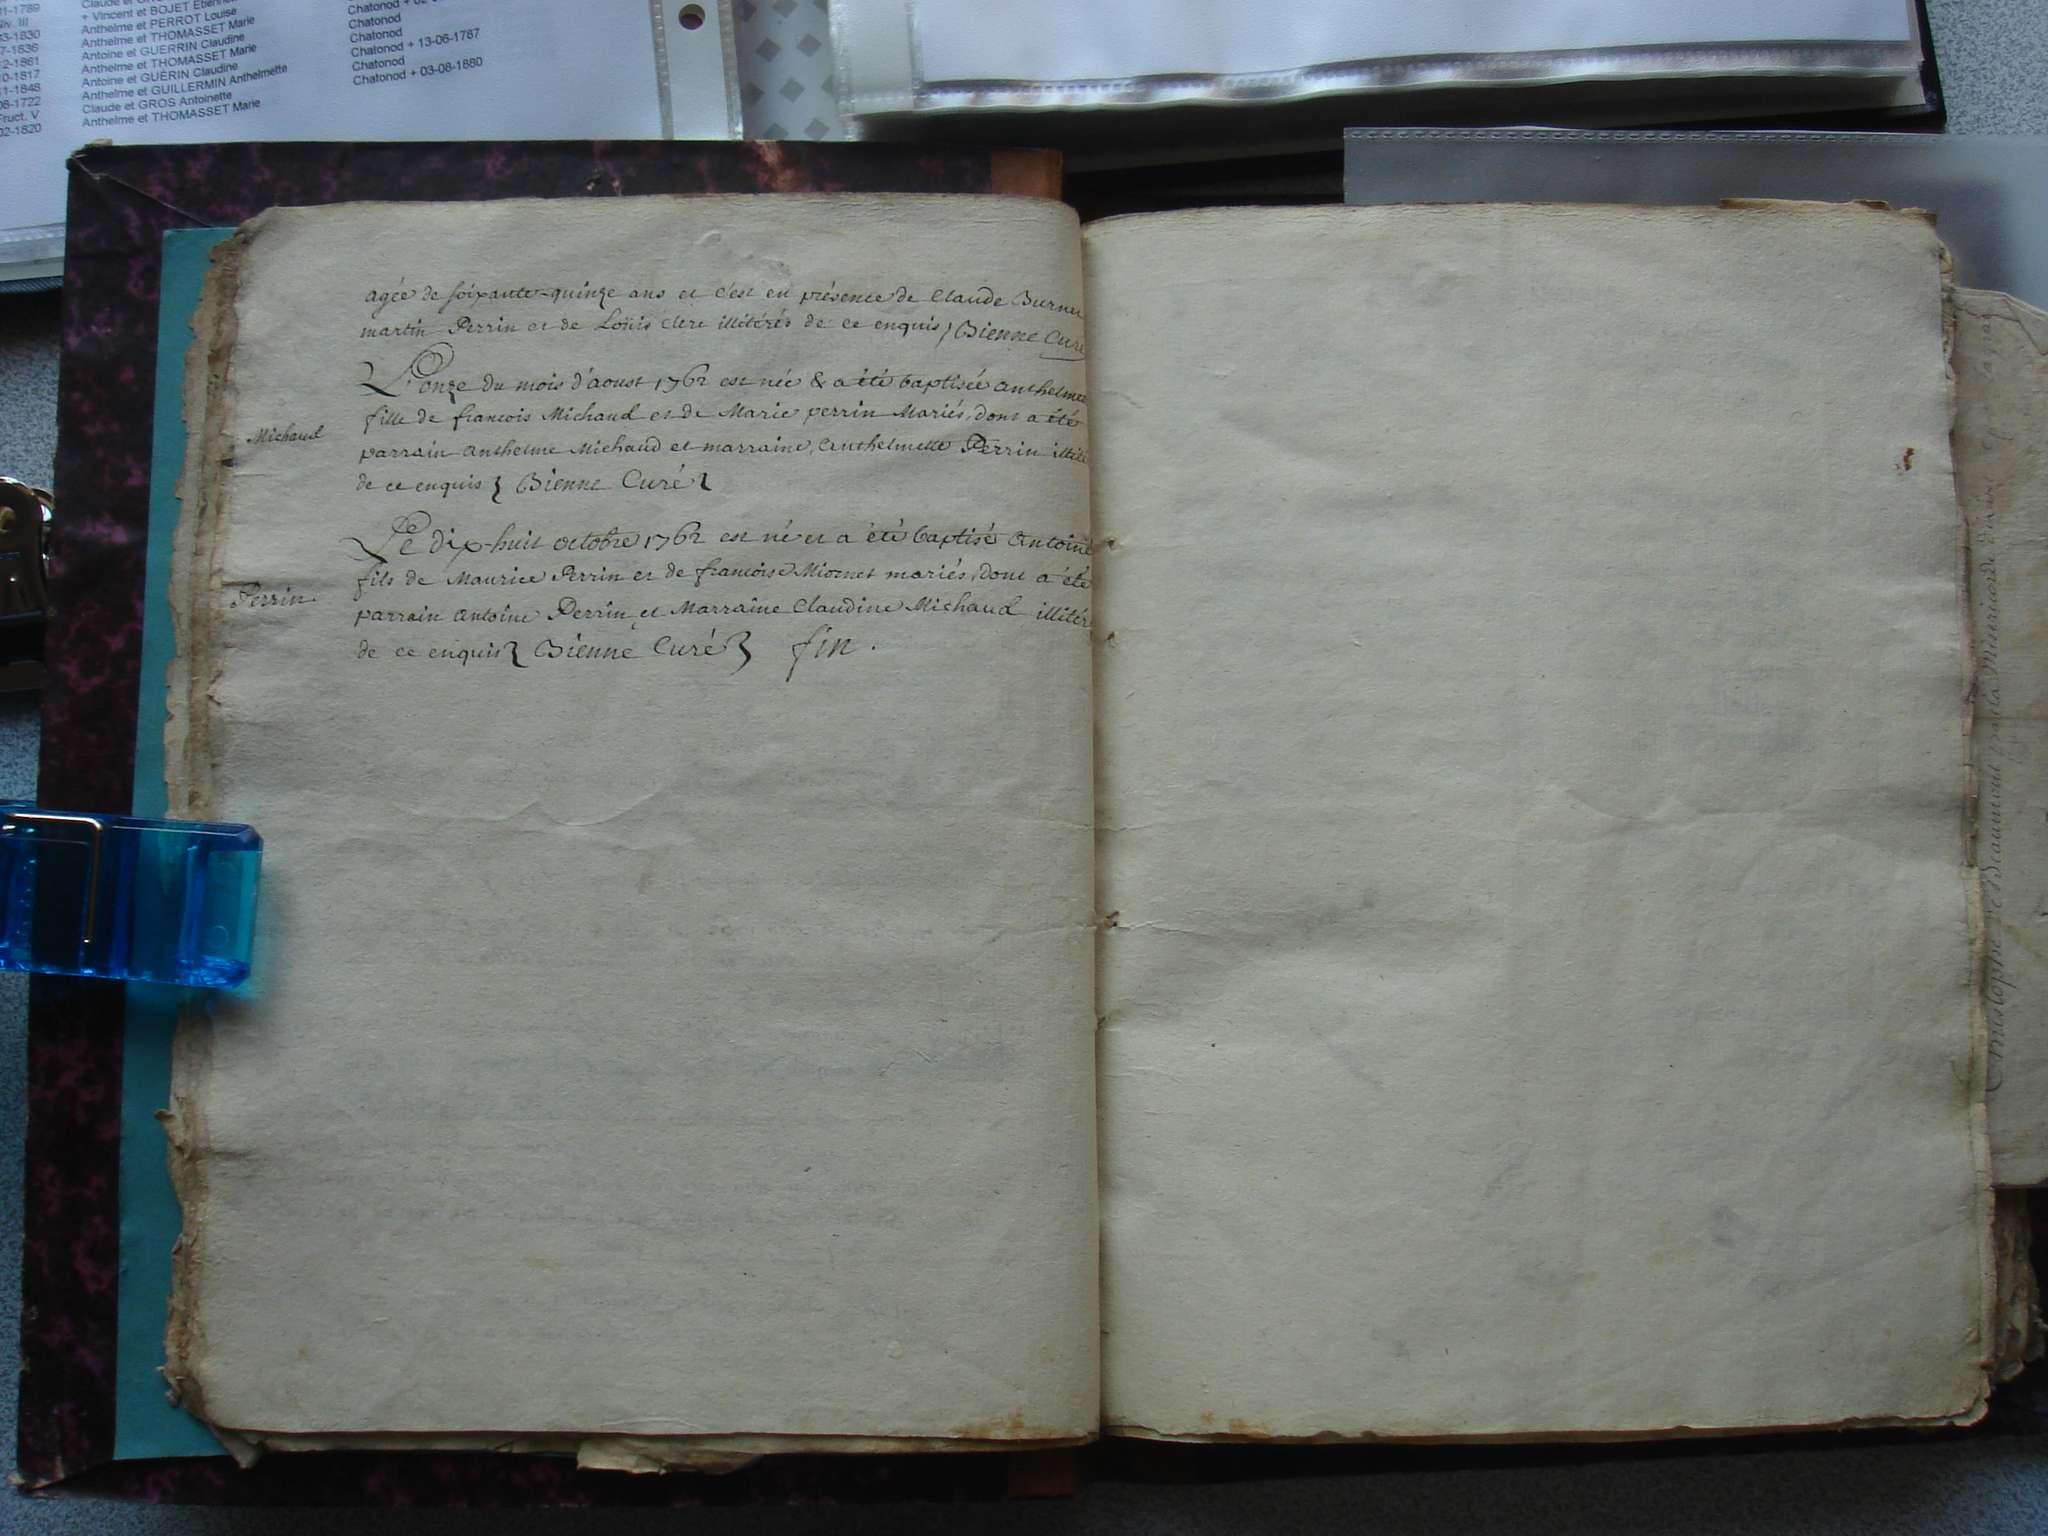 1-1789
Niv. III
3-1830
7-1836
2-1861
10-1817
11-1848
08-1722
Fruct. V
02-1820
+ Vincent et BOJET
Anthelme et PERROT Louise
Anthelme et THOMASSET Marie
Antoine et GUERRIN Claudine
Anthelme et THOMASSET Marie
Antoine et GUÉRIN Claudine
Anthelme et GUILLERMIN Anthelmette
Claude et GROS Antoinette
Anthelme et THOMASSET Marie
Chatonod
Chatonod
Chatonod
Chatonod + 13-06-1787
Chatonod
Chatonod + 03-08-1880
agée de soixante-quinze ans et c'est en présence de Claude Burnet
martin Perrin et de Loüis clerc illitérés de ce enquis Bienne Curé
L'onze du mois d'aoust 1762 est née & a été baptisée anthelme
fille de francois Michaud et de Marie perrin Mariés, dont a été
Michaud
parrain anthelme Michaud et marraine, Anthelmette Perrin illité
de ce enquis Bienne Curé
Le dix-huit octobre 1762 est né et a été baptisé Antoine
fils de Maurice Perrin et de francoise Miornet mariés, dont a été
Perrin.
parrain antoine Perrin et Marraine Claudine Michaud illitér
de ce enquis Bienne Curé fin.
Christophe de Beaumont par la Miséricorde divine